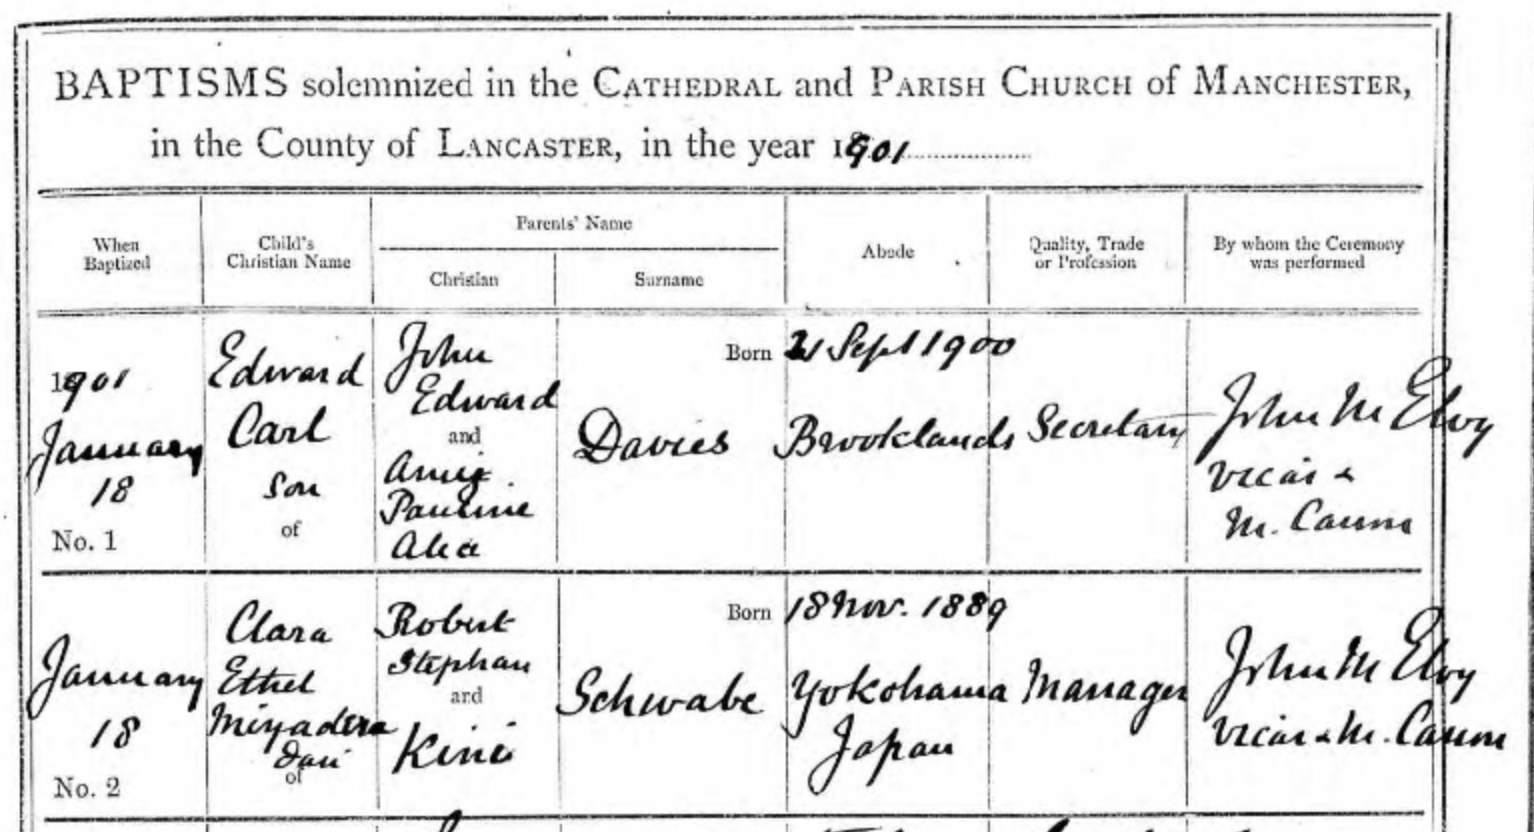 BAPTISMS solemnized in the CATHEDRAL and PARISH CHURCH of MANCHESTER,
in the County of LANCASTER, in the year 1901
When Baptized
Child's Christian Name
Parents' Name
Christian
Surname
Abode
Quality, Trade or Profession
By whom the Ceremony was performed
1901
January
18
No. 1
Edward
Carl
Son
of
John
Edward
and
Pauline
Davies
Born 21 Sept 1900
Brooklands
Secretary
John M Elvy
Vicar &
M. Canon
January
18
No. 2
Clara
Ethel
Miyadera
of
Robert
Stephan
and
Kine
Schwabe
Born 18 Nov. 1889
Yokohama
Japan
Manager
John M Elvy
Vicar & M. Canon